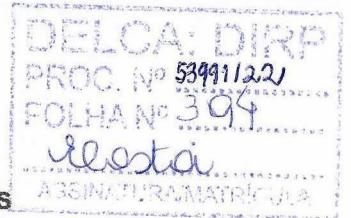 DELCA: DIRP
PROC. Nº 53991/22
FOLHA Nº 394
ASSINATURA/MATRÍCULA
s